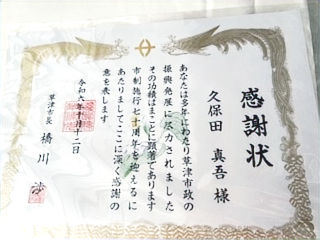 感謝状
久保田 真吾 様
あなたは多年にわたり草津市政の
振興発展に尽力されました
その功績はまことに顕著であります
市制施行七十周年を迎えるに
あたりましてここに深く感謝の
意を表します
令和六年十月十二日
草津市長 橋川 渉